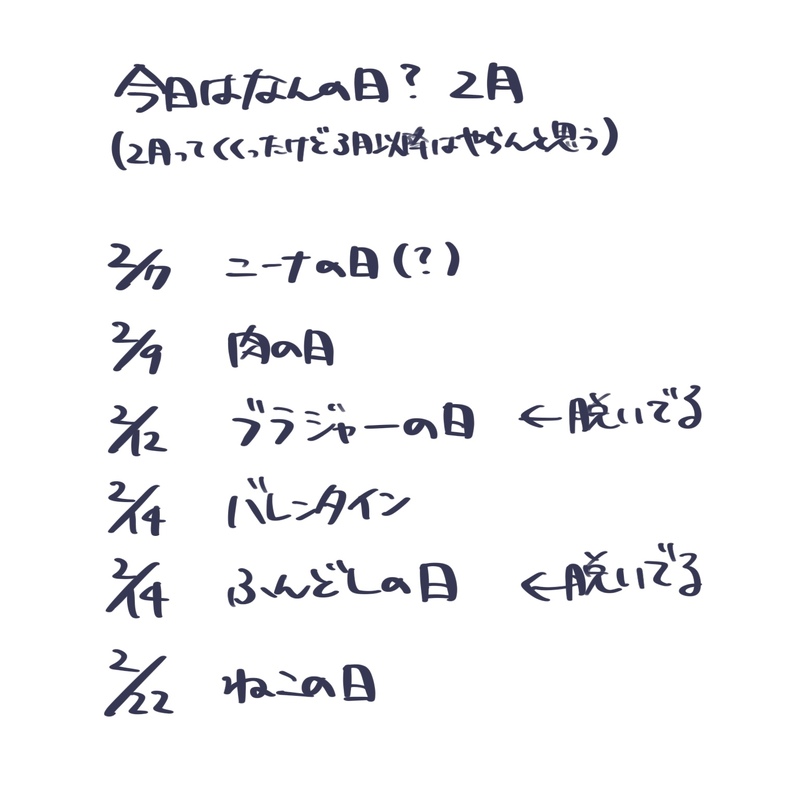 今日はなんの日? 2月
(2月ってくくったけど3月以降はやらんと思う)
2/7 ニーナの日(?)
2/9 肉の日
2/12 ブラジャーの日 ←脱いでる
2/14 バレンタイン
2/14 ふんどしの日 ←脱いでる
2/22 ねこの日